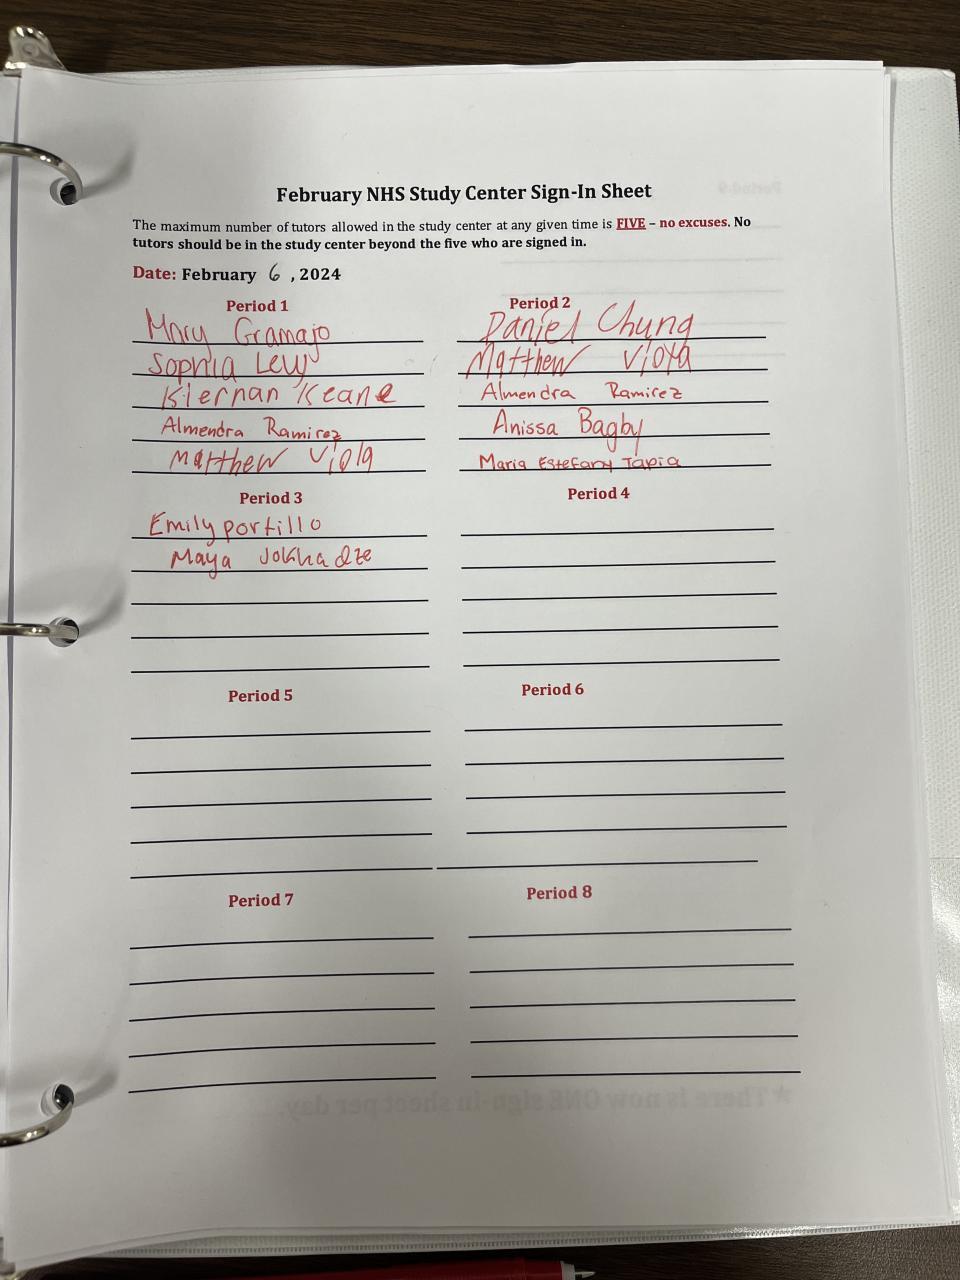 February NHS Study Center Sign-In Sheet
The maximum number of tutors allowed in the study center at any given time is FIVE – no excuses. No
tutors should be in the study center beyond the five who are signed in.
Date: February 6, 2024
Period 1
Mary Gramajo
Sophia Levy
Kiernan Keane
Almendra Ramirez
Matthew Viola
Period 2
Daniel Chung
Matthew Viola
Almendra Ramirez
Anissa Bagby
Maria Estefany Tapia
Period 3
Emily portillo
Maya Jokhadze
Period 4
Period 5
Period 6
Period 7
Period 8
Period 9
★There is now ONE sign-in sheet per day.